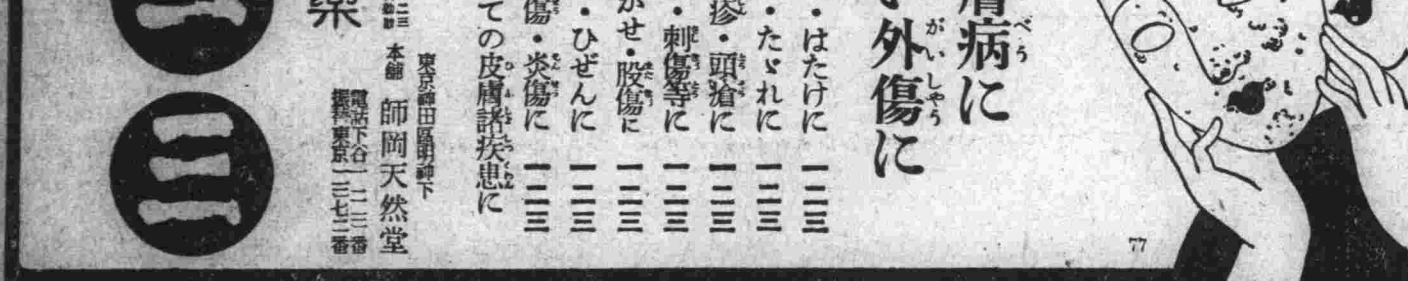 膚病に
外傷に
・はたけに 一二三
・たゞれに 一二三
疹・頭瘡に 一二三
・刺傷等に 一二三
がせ・股傷に 一二三
・ひぜんに 一二三
傷・炎傷に 一二三
ての皮膚諸疾患に
東京神田區明神下
本舗 師岡天然堂
電話下谷一二三番
振替東京一三七二番
薬
三
77